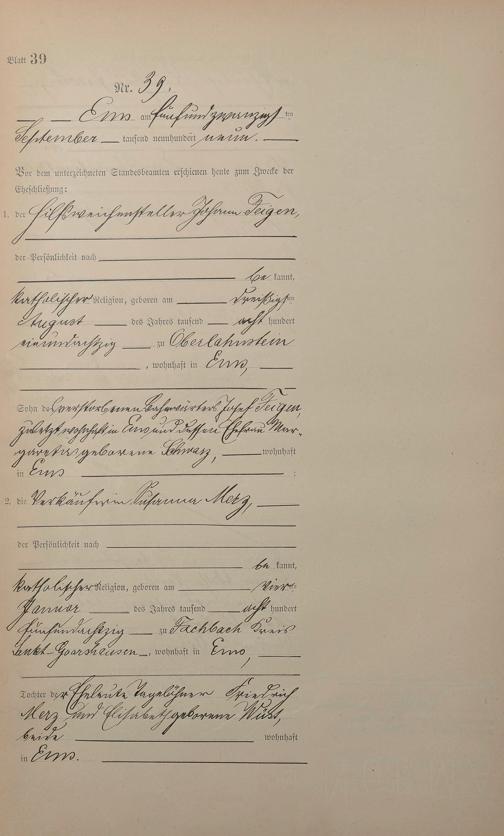 Blatt 39
Nr. 39.
Ems am fünfundzwanzigsten
September tausend neunhundert neun.
Vor dem unterzeichneten Standesbeamten erschienen heute zum Zwecke der
Eheschließung:
1. der Hilfsweichensteller Johann Feigen,
der Persönlichkeit nach
be kannt,
katholischer Religion, geboren am dreißigsten
August des Jahres tausend acht hundert
einundachtzig zu Oberlahnstein
, wohnhaft in Ems,
Sohn des verstorbenen Bahnwärters Josef Feigen,
zuletzt wohnhaft in Ems und dessen Ehefrau Mar-
gareta geborene Schwarz, wohnhaft
in Ems ;
2. die Verkäuferin Susanna Merz,
der Persönlichkeit nach
be kannt,
katholischer Religion, geboren am vierten
Januar des Jahres tausend acht hundert
fünfundachtzig zu Fachbach Kreis
Sankt Goarshausen, wohnhaft in Ems,
Tochter der Eheleute Tagelöhner Friedrich
Merz und Elisabeth geborene Wust,
beide wohnhaft
in Ems.